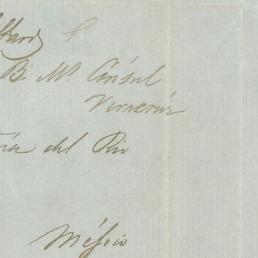 B. M. Cónsul
Veracruz
del Rio
Méjico